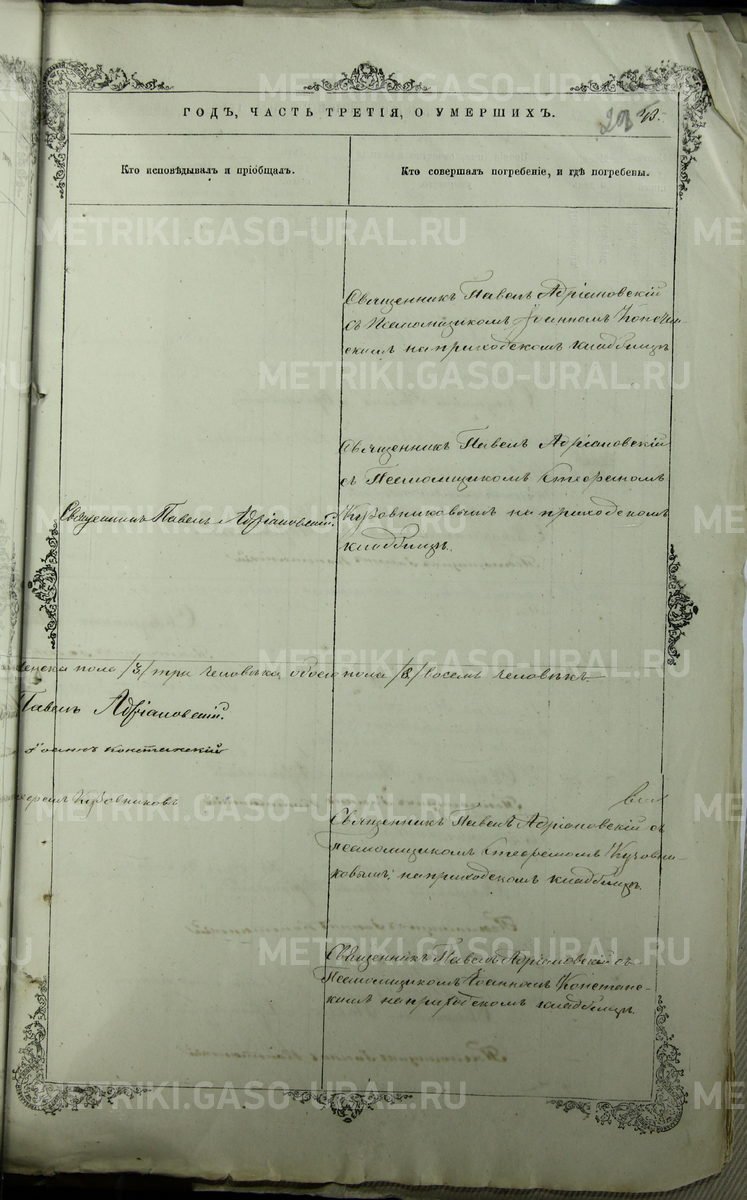 METRIKI.GASO-URAL.RU
ГОДЪ, ЧАСТЬ ТРЕТІЯ, О УМЕРШИХЪ.
Кто исповѣдывалъ и пріобщалъ.
Кто совершалъ погребеніе, и гдѣ погребены.
Священникъ Павелъ Адріановскій
съ Псаломщикомъ Іоанномъ
на приходскомъ кладбищѣ
Священникъ Павелъ Адріановскій
съ Псаломщикомъ Стефаномъ
Священникъ Павелъ Адріановскій.
Кузовниковымъ на приходскомъ
кладбищѣ.
женска пола /3/ три человѣка, обоего пола /8/ восемь человѣкъ.
Павелъ Адріановскій.
Іоаннъ Констанскій
Кузовниковъ
Священникъ Павелъ Адріановскій съ
псаломщикомъ Стефаномъ Кузовни-
ковымъ, на приходскомъ кладбищѣ.
Священникъ Павелъ Адріановскій съ
Псаломщикомъ Іоанномъ Констанс-
кимъ на приходскомъ кладбищѣ.